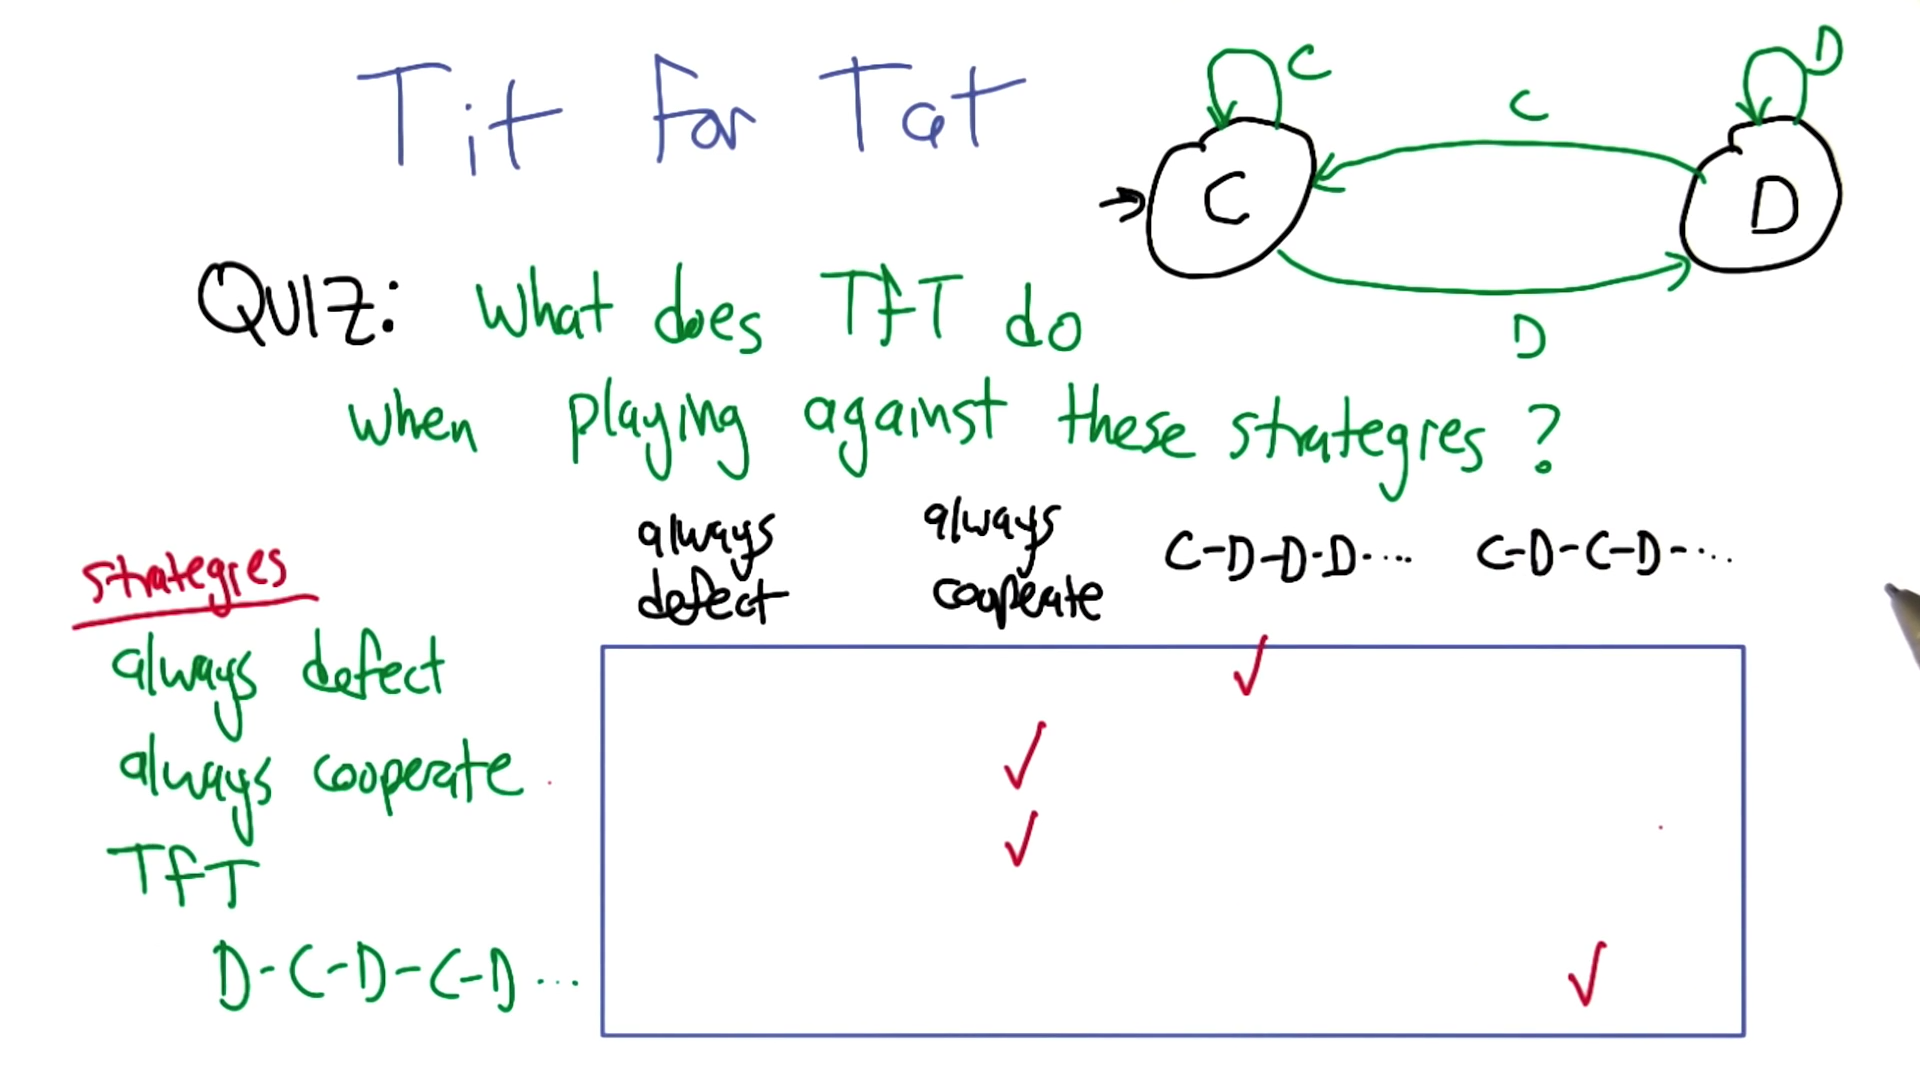 Tit for Tat
C
D
C
C
D
D
QUIZ: What does TfT do
when playing against these strategies?
always defect
always cooperate
C-D-D-D-...
C-D-C-D-...
strategies
always defect
always cooperate
TfT
D-C-D-C-D...